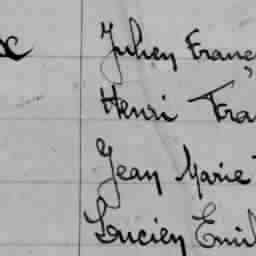 Julien Franç
Henri Fra
Jean Marie
Lucien Emil